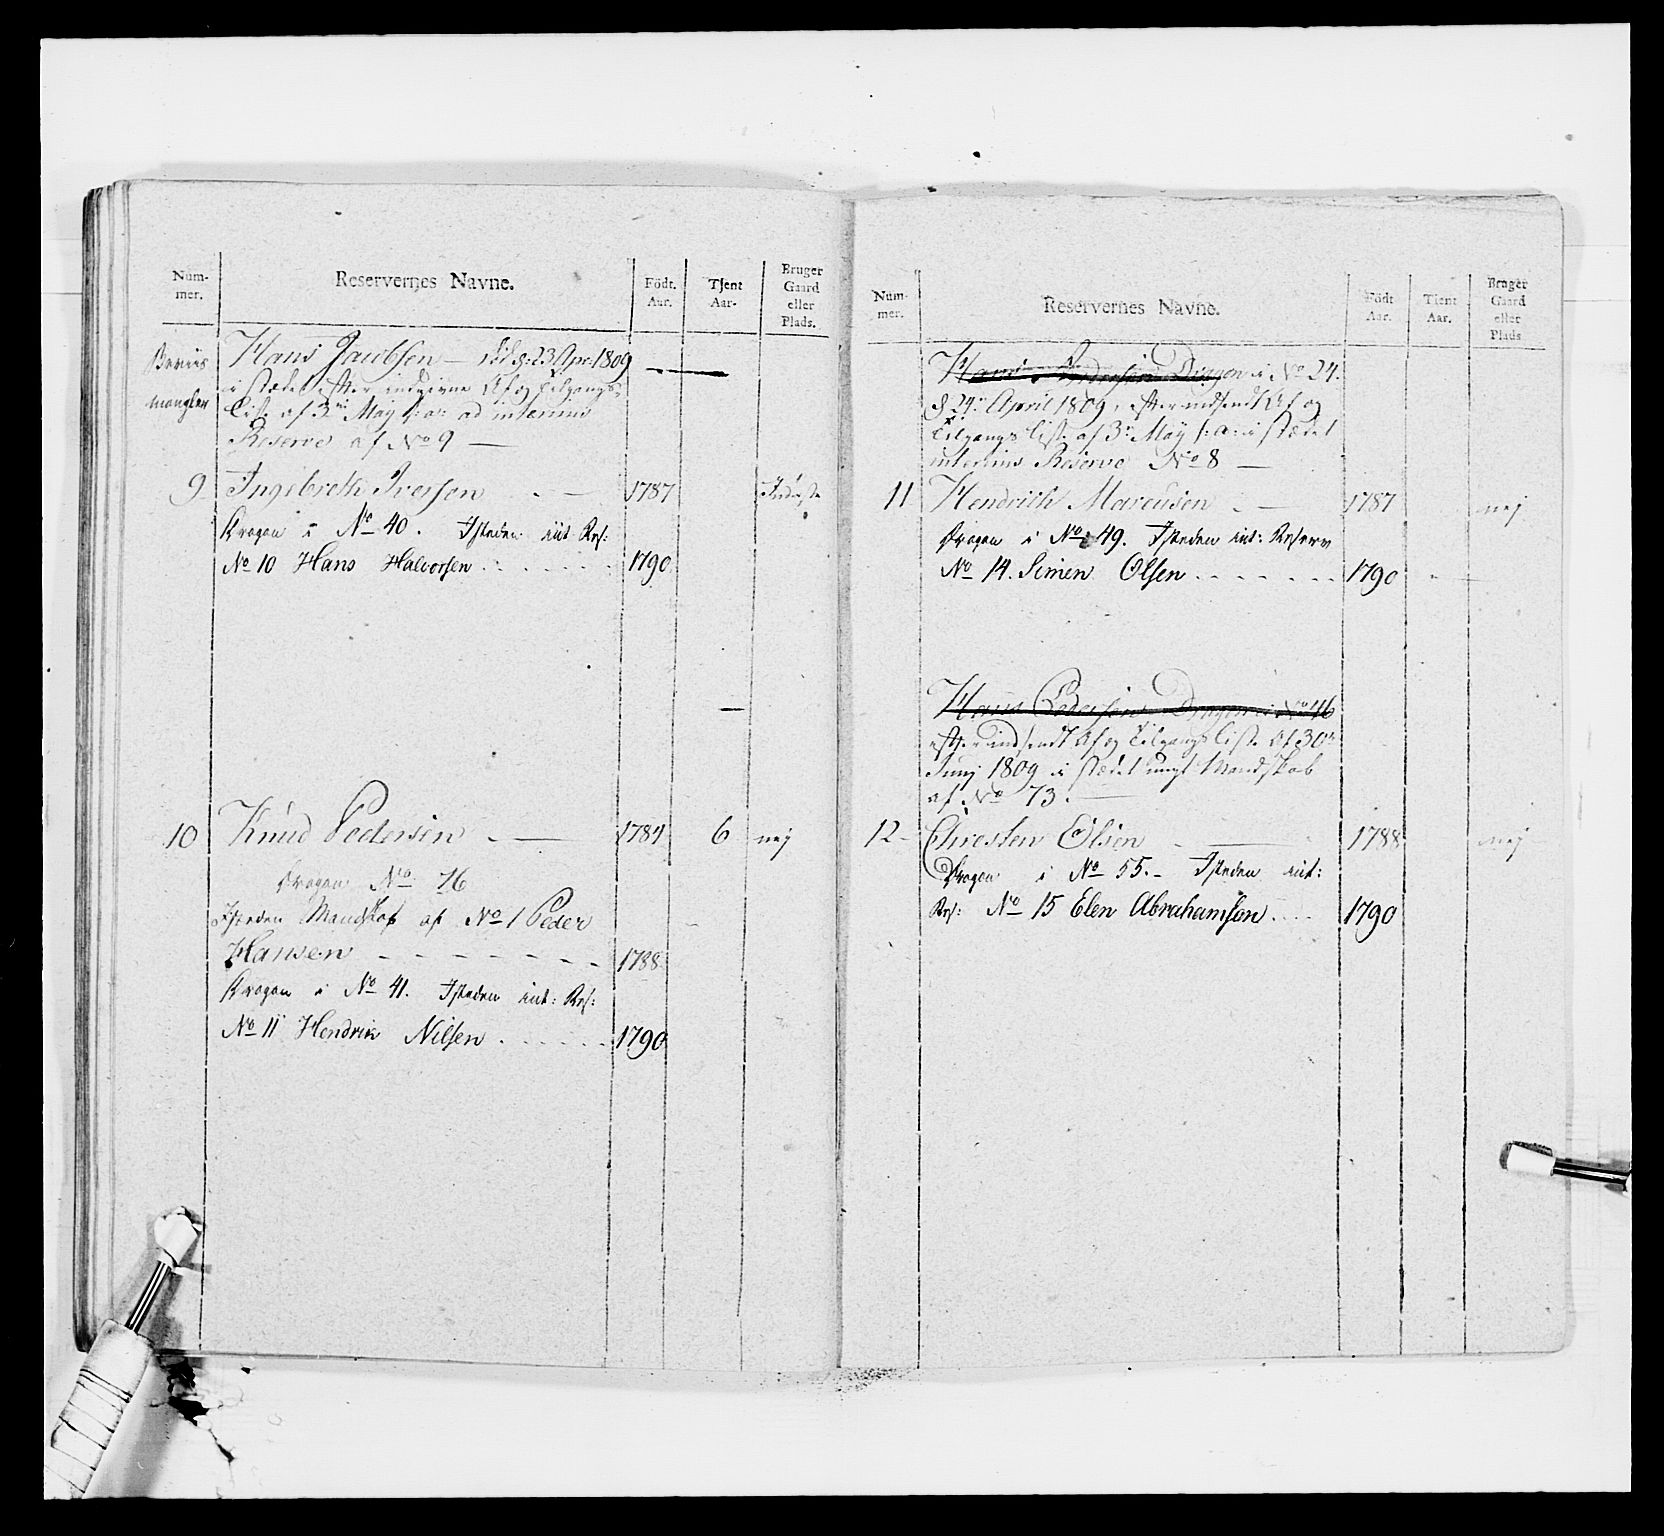 Num-
mer.
Reservernes Navne.
Född.
Aar.
Tjent
Aar.
Bruger
Gaard
eller
Plads.
Beviis
mangler
Hans Jacobsen — død d: 23 Apr: 1809
i stædet efter indgivne Af og Tilgangs
Liste af 3die May s: a: ad interims
Reserve af No 9 —
9 Ingebreth Iversen - — 1787
Dragon i No 40. Isteden int Res:
No 10 Hans Halvorsen . . . . . . 1790
10 Knud Pedersen - — 1784 6 nej
Dragon No 76
Isteden Mandskab af No 1 Peder
Hansen - - - - - - - 1788
Dragon i No 41. Isteden int: Res:
No 11 Hendrik Nilsen . . . . . . 1790
Num-
mer.
Reservernes Navne.
Född
Aar.
Tient
Aar.
Bruger
Gaard
eller
Plads
Hans Pedersen Dragon i No 24.
d 24de April 1809, efter indsendt Af og
Tilgangs Liste af 3de May s: a: i stædet
interims Reserve No 8 —
11 Hendrich Marcusen - — 1787 nej
Dragon i No 49. Isteden int: Reserve
No 14. Simen Olsen . . . . . . . 1790
Hans Pedersen Dragon i No 46
efter indsendt Af og Tilgangs Liste af 30te
Junj 1809 i stædet ungt Mandskab
af No 73. —
12 - Christen Olsen - — 1788 nej
Dragon i No 55. - Isteden int:
Res: No 15 Elen Abrahamsen . . . 1790